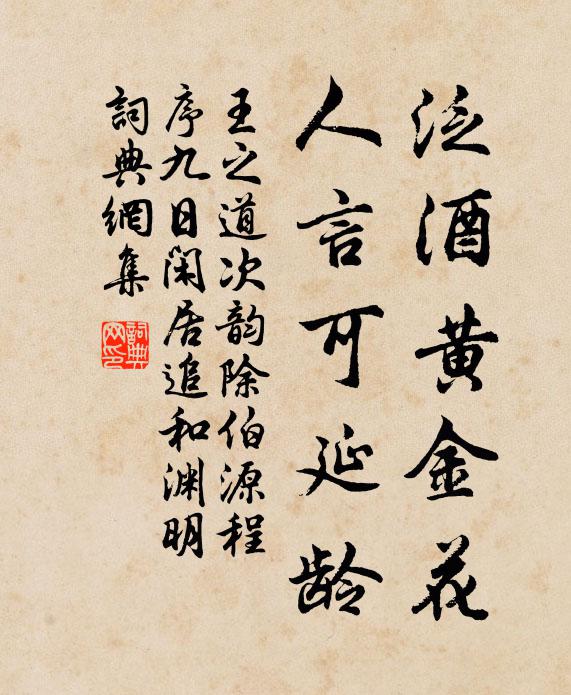 泛酒黄金花
人言可延龄
王之道次韵除伯源程
序九日闲居追和渊明
詞典網集
詞典网印